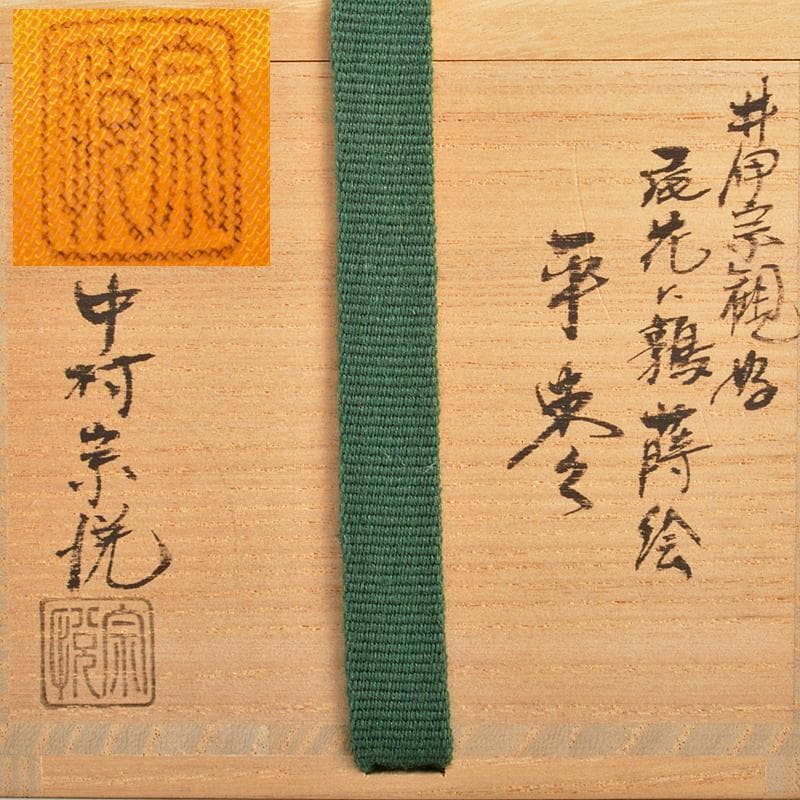 井伊宗観好
尾花に鶉蒔絵
平棗
中村宗悦
宗悦
宗悦